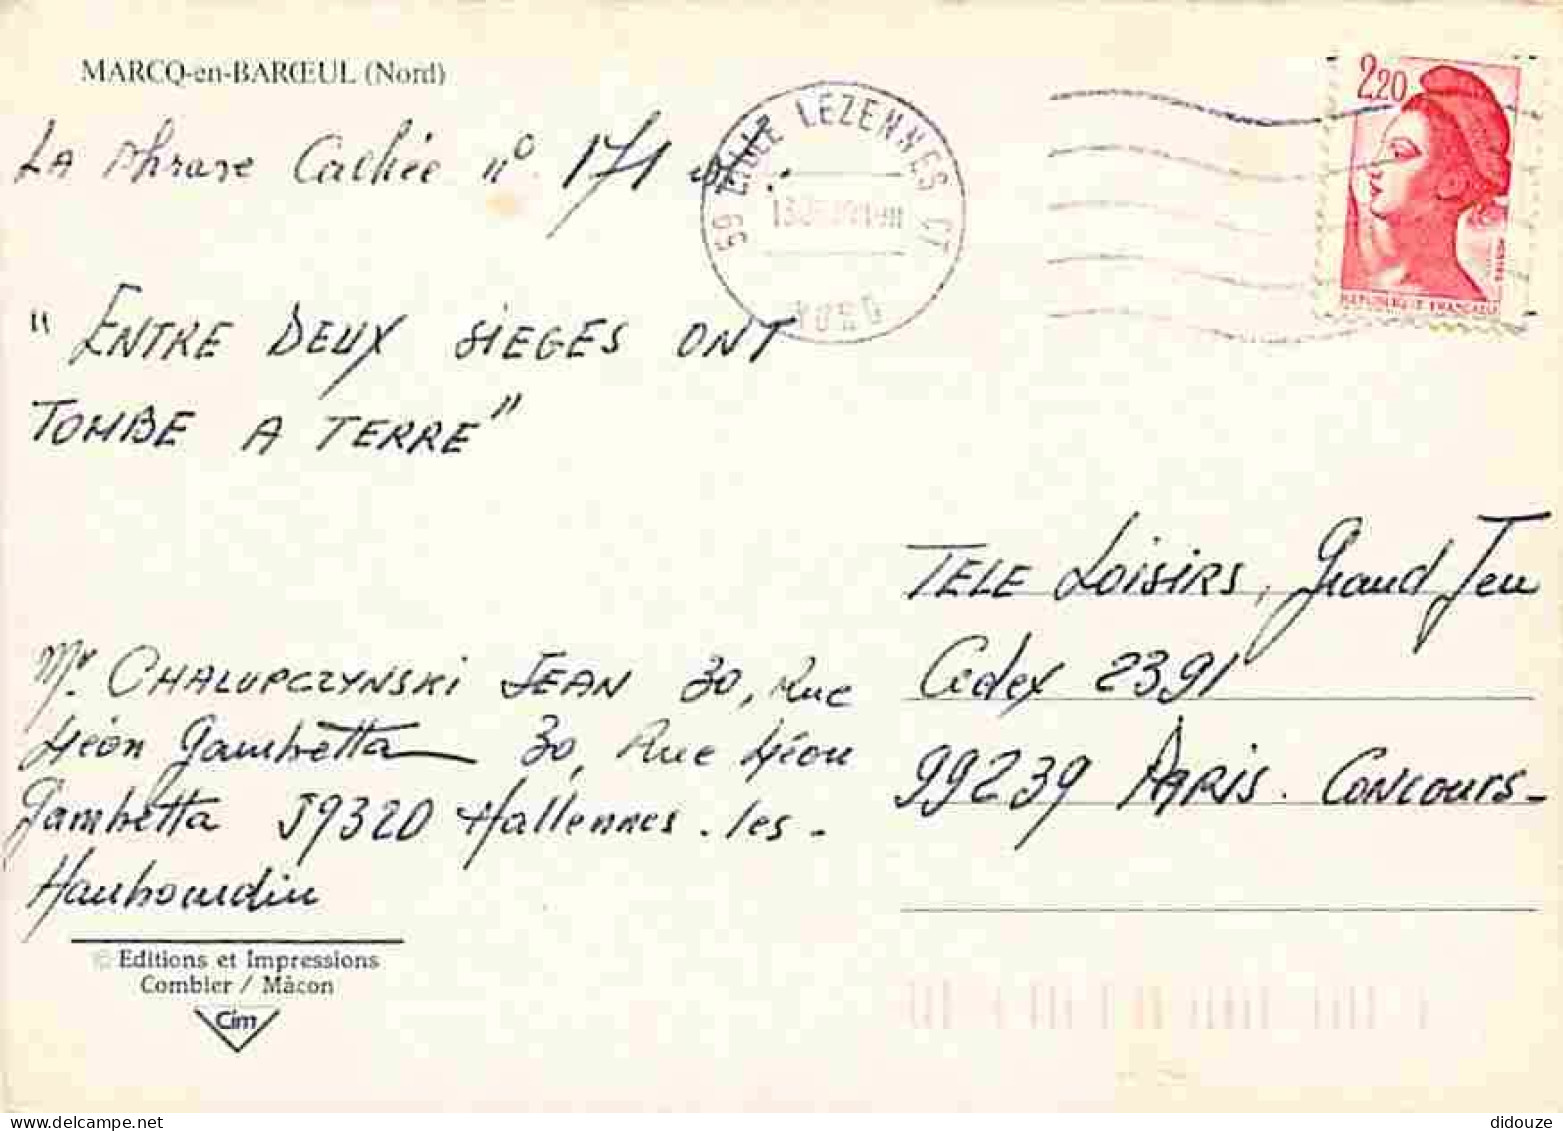 MARCQ-en-BARŒUL (Nord)
La phrase Cachée n° 171 est:
59 LILLE LEZENNES CT
NORD
2,20
REPUBLIQUE FRANÇAISE
" ENTRE DEUX SIEGES ONT
TOMBE A TERRE"
TELE Loisirs, Grand Jeu
Cedex 2391
99239 PARIS. CONCOURS-
Mr. CHALUPCZYNSKI JEAN 30, Rue
Léon Gambetta 30, Rue Léon
Gambetta 59320 Hallennes-les-
Haubourdin
© Editions et Impressions
Combier / Mâcon
Cim
didouze